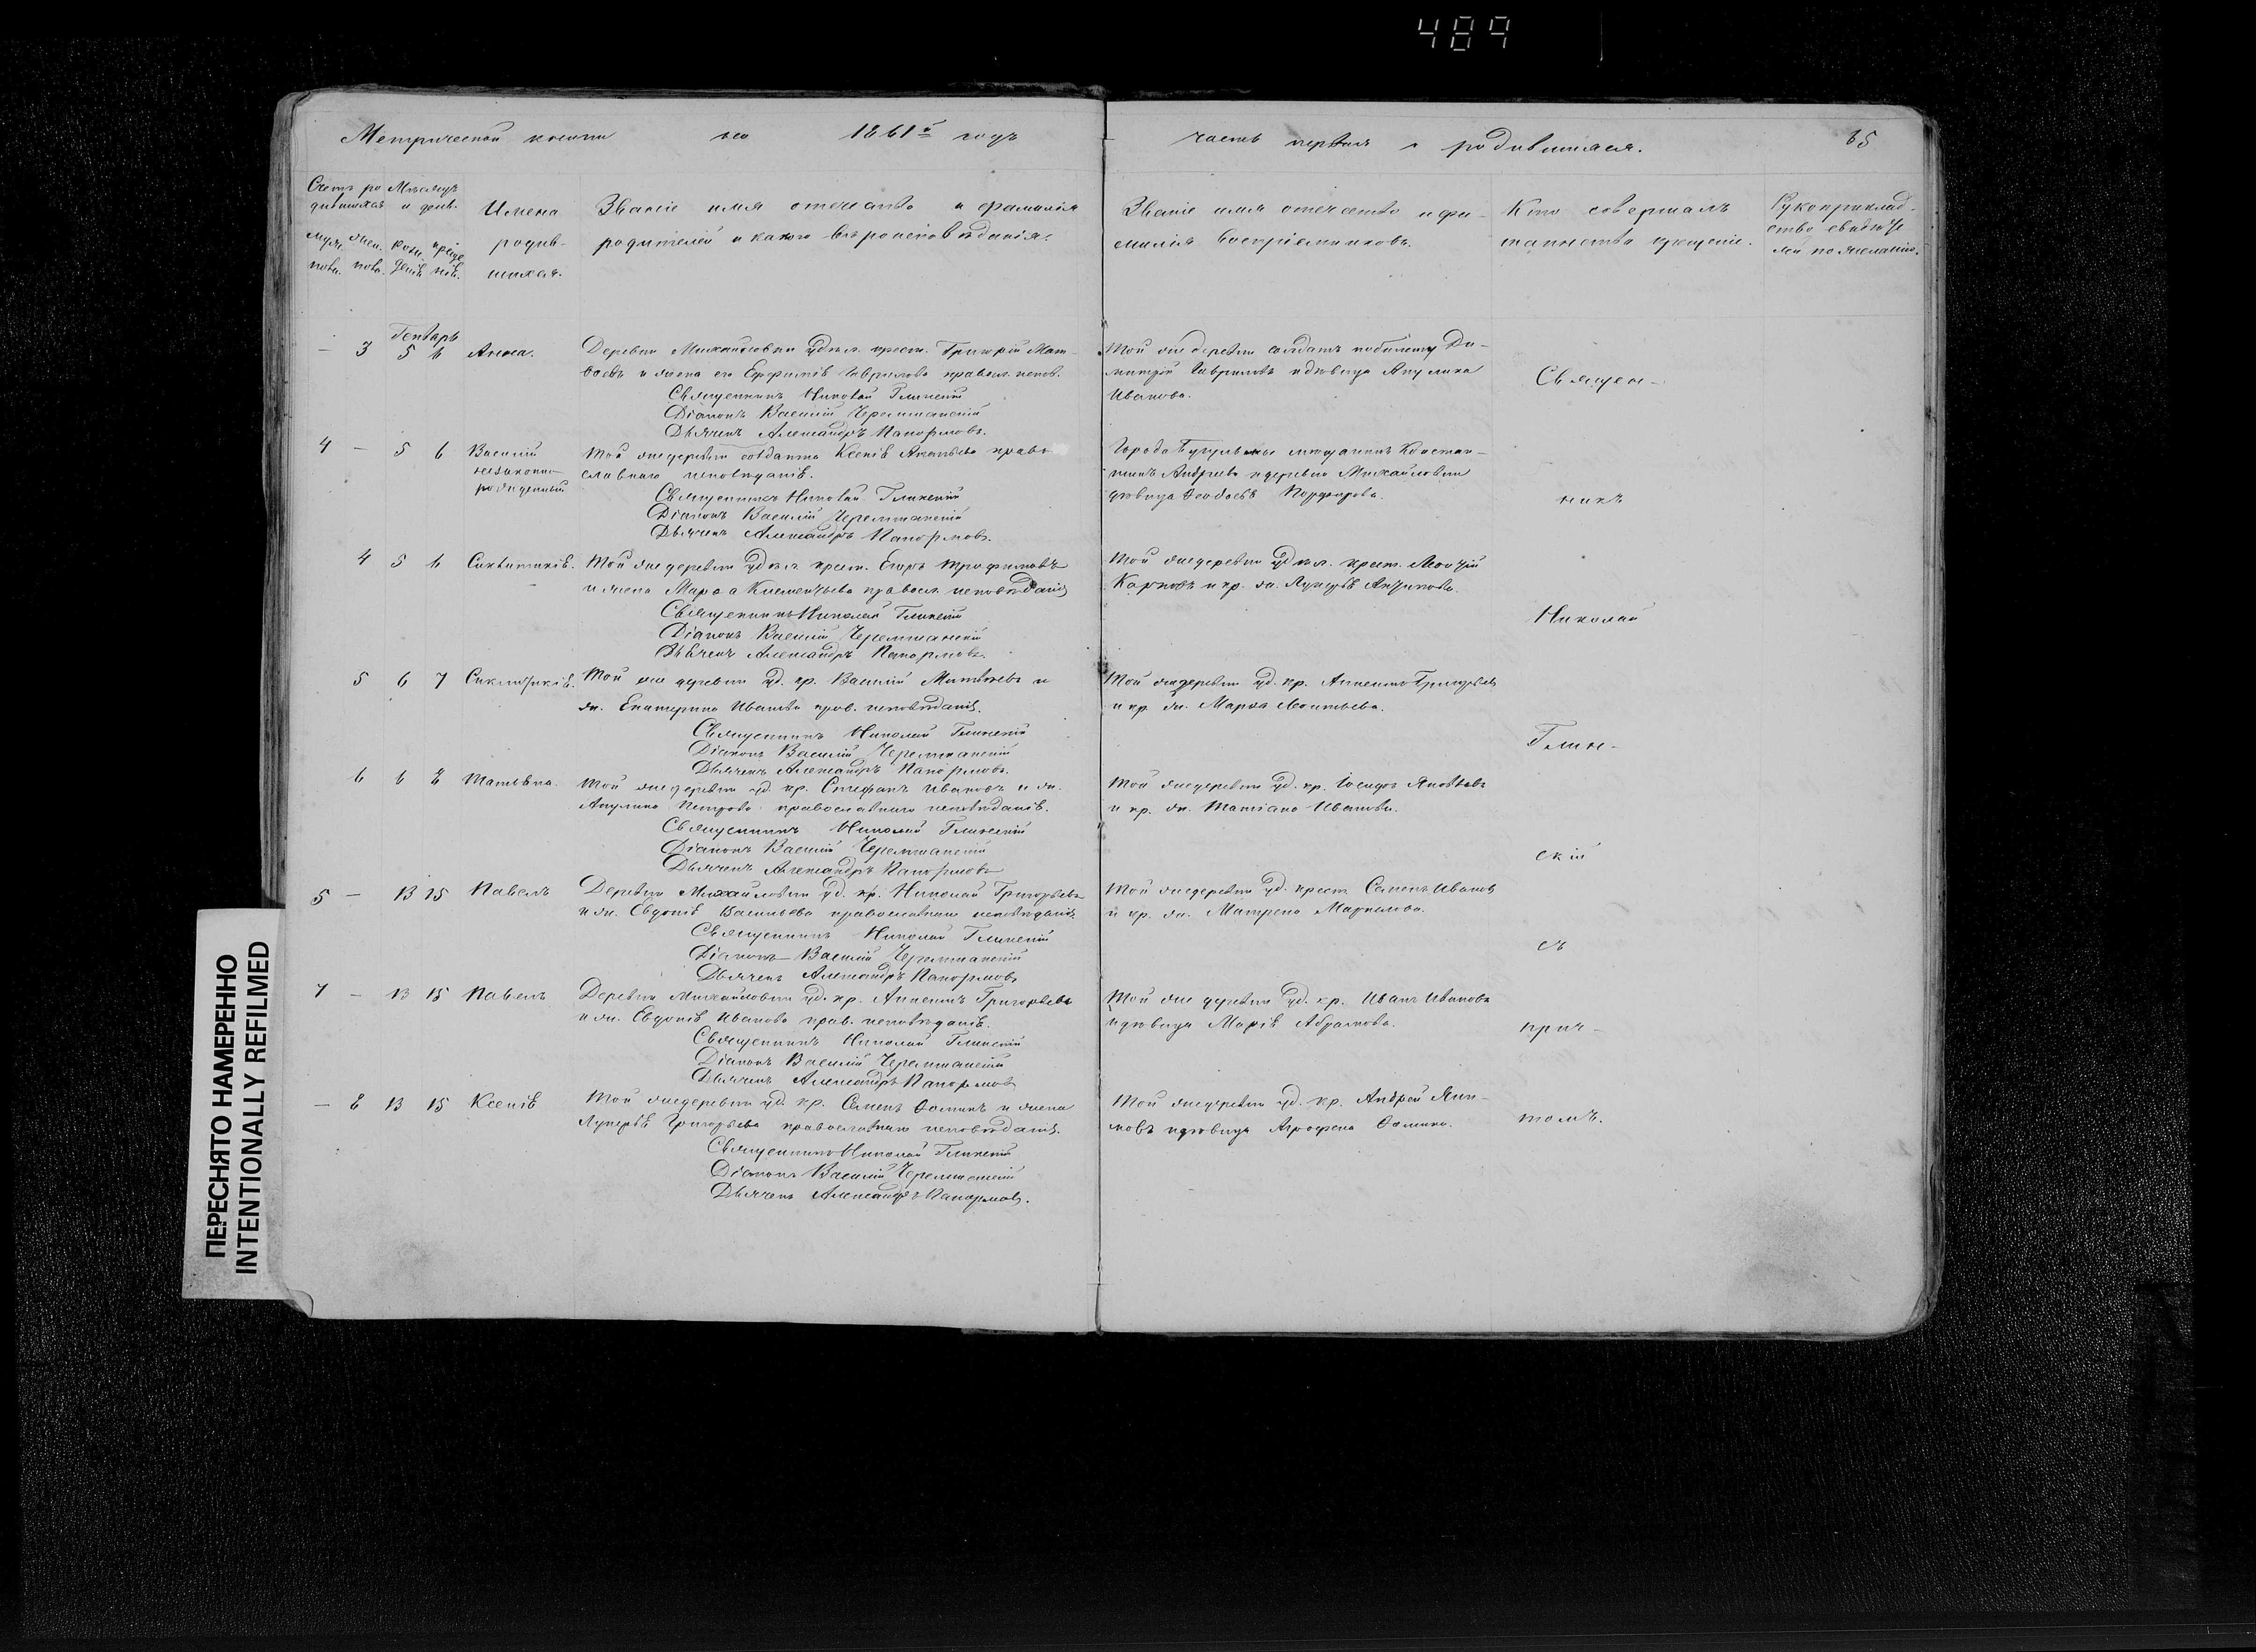 489
Метрической книги на 1861й годъ
часть первая о родившихся.
85
Счетъ ро Мѣсяцъ
дившихся и день.
Имена
родив-
шихся.
Званіе имя отечество и фамилія
родителей и какого вѣроисповѣданія.
Званіе имя отечество и фа-
милія воспріемниковъ.
Кто совершалъ
таинство крещенія.
Рукоприклад-
ство свидѣте
лей по желанію.
Генварь
— 3 5 6 Анна.
Деревни Михайловки удѣл. крест. Григорій Мат-
вѣевъ и жена его Ефимія Гаврилова правосл. испов.
Священникъ Николай Глинскій
Діаконъ Василій Черемшанскій
Дьячекъ Александръ Панормовъ.
Той же деревни солдатъ по билету Ди-
митрій Гавриловъ и дѣвица Акулина
Иванова.
4 — 5 6 Василій
незаконно-
рожденный
Той же деревни солдатка Ксенія Ананьева право
славнаго исповѣданія.
Священникъ Николай Глинскій
Діаконъ Василій Черемшанскій
Дьячекъ Александръ Панормовъ.
Города Бугульмы мещанинъ Констан-
тинъ Андреевъ и деревни Михайловки
дѣвица Порфирова.
4 5 6 Синклитикія.
Той же деревни удѣл. крест. Егоръ Трофимовъ
и жена Марѳа Климентьева правосл. исповѣданія
Священникъ Николай Глинскій
Діаконъ Василій Черемшанскій
Дьячекъ Александръ Панормовъ.
Той же деревни удѣл. крест. Леонтій
Карповъ и кр. ж. Лукерья
5 6 7 Синклитикія.
Той же деревни уд. кр. Василій Матвѣевъ и
ж. Екатерина Иванова прав. исповѣданія.
Священникъ Николай Глинскій
Діаконъ Василій Черемшанскій
Дьячекъ Александръ Панормовъ.
Той же деревни уд. кр. Григорьевъ
и кр. ж. Марѳа Леонтьева.
6 6 8 Татьяна.
Той же деревни уд. кр. Стефанъ Ивановъ и ж.
Акулина Петрова православнаго исповѣданія.
Священникъ Николай Глинскій
Діаконъ Василій Черемшанскій
Дьячекъ Александръ Панормовъ
Той же деревни уд. кр. Іосифъ Яковлевъ
и кр. ж. Татіана Иванова.
5 — 13 15 Павелъ
Деревни Михайловки уд. кр. Николай Григорьевъ
и ж. Евдокія Васильева православнаго исповѣданія
Священникъ Николай Глинскій
Діаконъ Василій Черемшанскій
Дьячекъ Александръ Панормовъ
Той же деревни уд. крест. Семенъ Ивановъ
и кр. ж. Матрена Маркелова.
7 — 13 15 Павелъ
Деревни Михайловки уд. кр. Григорьевъ
и ж. Евдокія Иванова прав. исповѣданія.
Священникъ Николай Глинскій
Діаконъ Василій Черемшанскій
Дьячекъ Александръ Панормовъ
Той же деревни уд. кр. Иванъ Ивановъ
и дѣвица Марія Абрамова.
— 8 13 15 Ксенія
Той же деревни уд. кр. Семенъ Ѳоминъ и жена
Лукерья Григорьева православнаго исповѣданія.
Священникъ Николай Глинскій
Діаконъ Василій Черемшанскій
Дьячекъ Александръ Панормовъ.
Той же деревни уд. кр. Андрей Яки-
мовъ и дѣвица Агрофена Ѳомина.
Священ-
никъ
Николай
Глин-
скій
съ
прич-
томъ.
ПЕРЕСНЯТО НАМЕРЕННО
INTENTIONALLY REFILMED